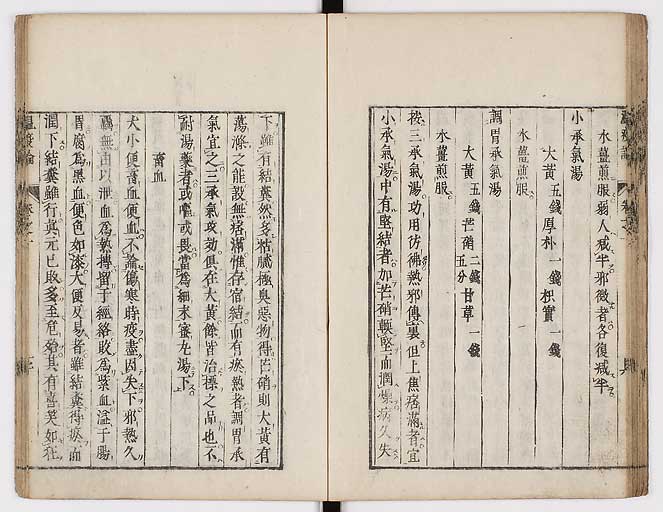 水薑煎服弱人減半邪微者各復減半
小承氣湯
大黃五錢厚朴一錢枳實一錢
水薑煎服
調胃承氣湯
大黃五錢芒硝二錢五分甘草一錢
水薑煎服
按三承氣湯功用彷彿熱邪傳裏但上焦痞滿者宜
小承氣湯中有堅結者加芒硝軟堅而潤燥病久失
下雖有結糞然多粘膩極臭惡物得芒硝則大黃有
蕩滌之能設無痞滿惟存宿結而有瘀熱者調胃承
氣宜之三承氣功効俱在大黃餘皆治標之品也不
耐湯藥者或嘔或畏當為細末蜜丸湯下
畜血
大小便畜血便血不論傷寒時疫盡因失下邪熱久
羈無由以泄血為熱搏留于經絡敗為紫血溢于腸
胃腐為黑血便色如漆大便反易者雖結糞得瘀而
潤下結糞雖行真元已敗多至危殆其有喜笑如狂